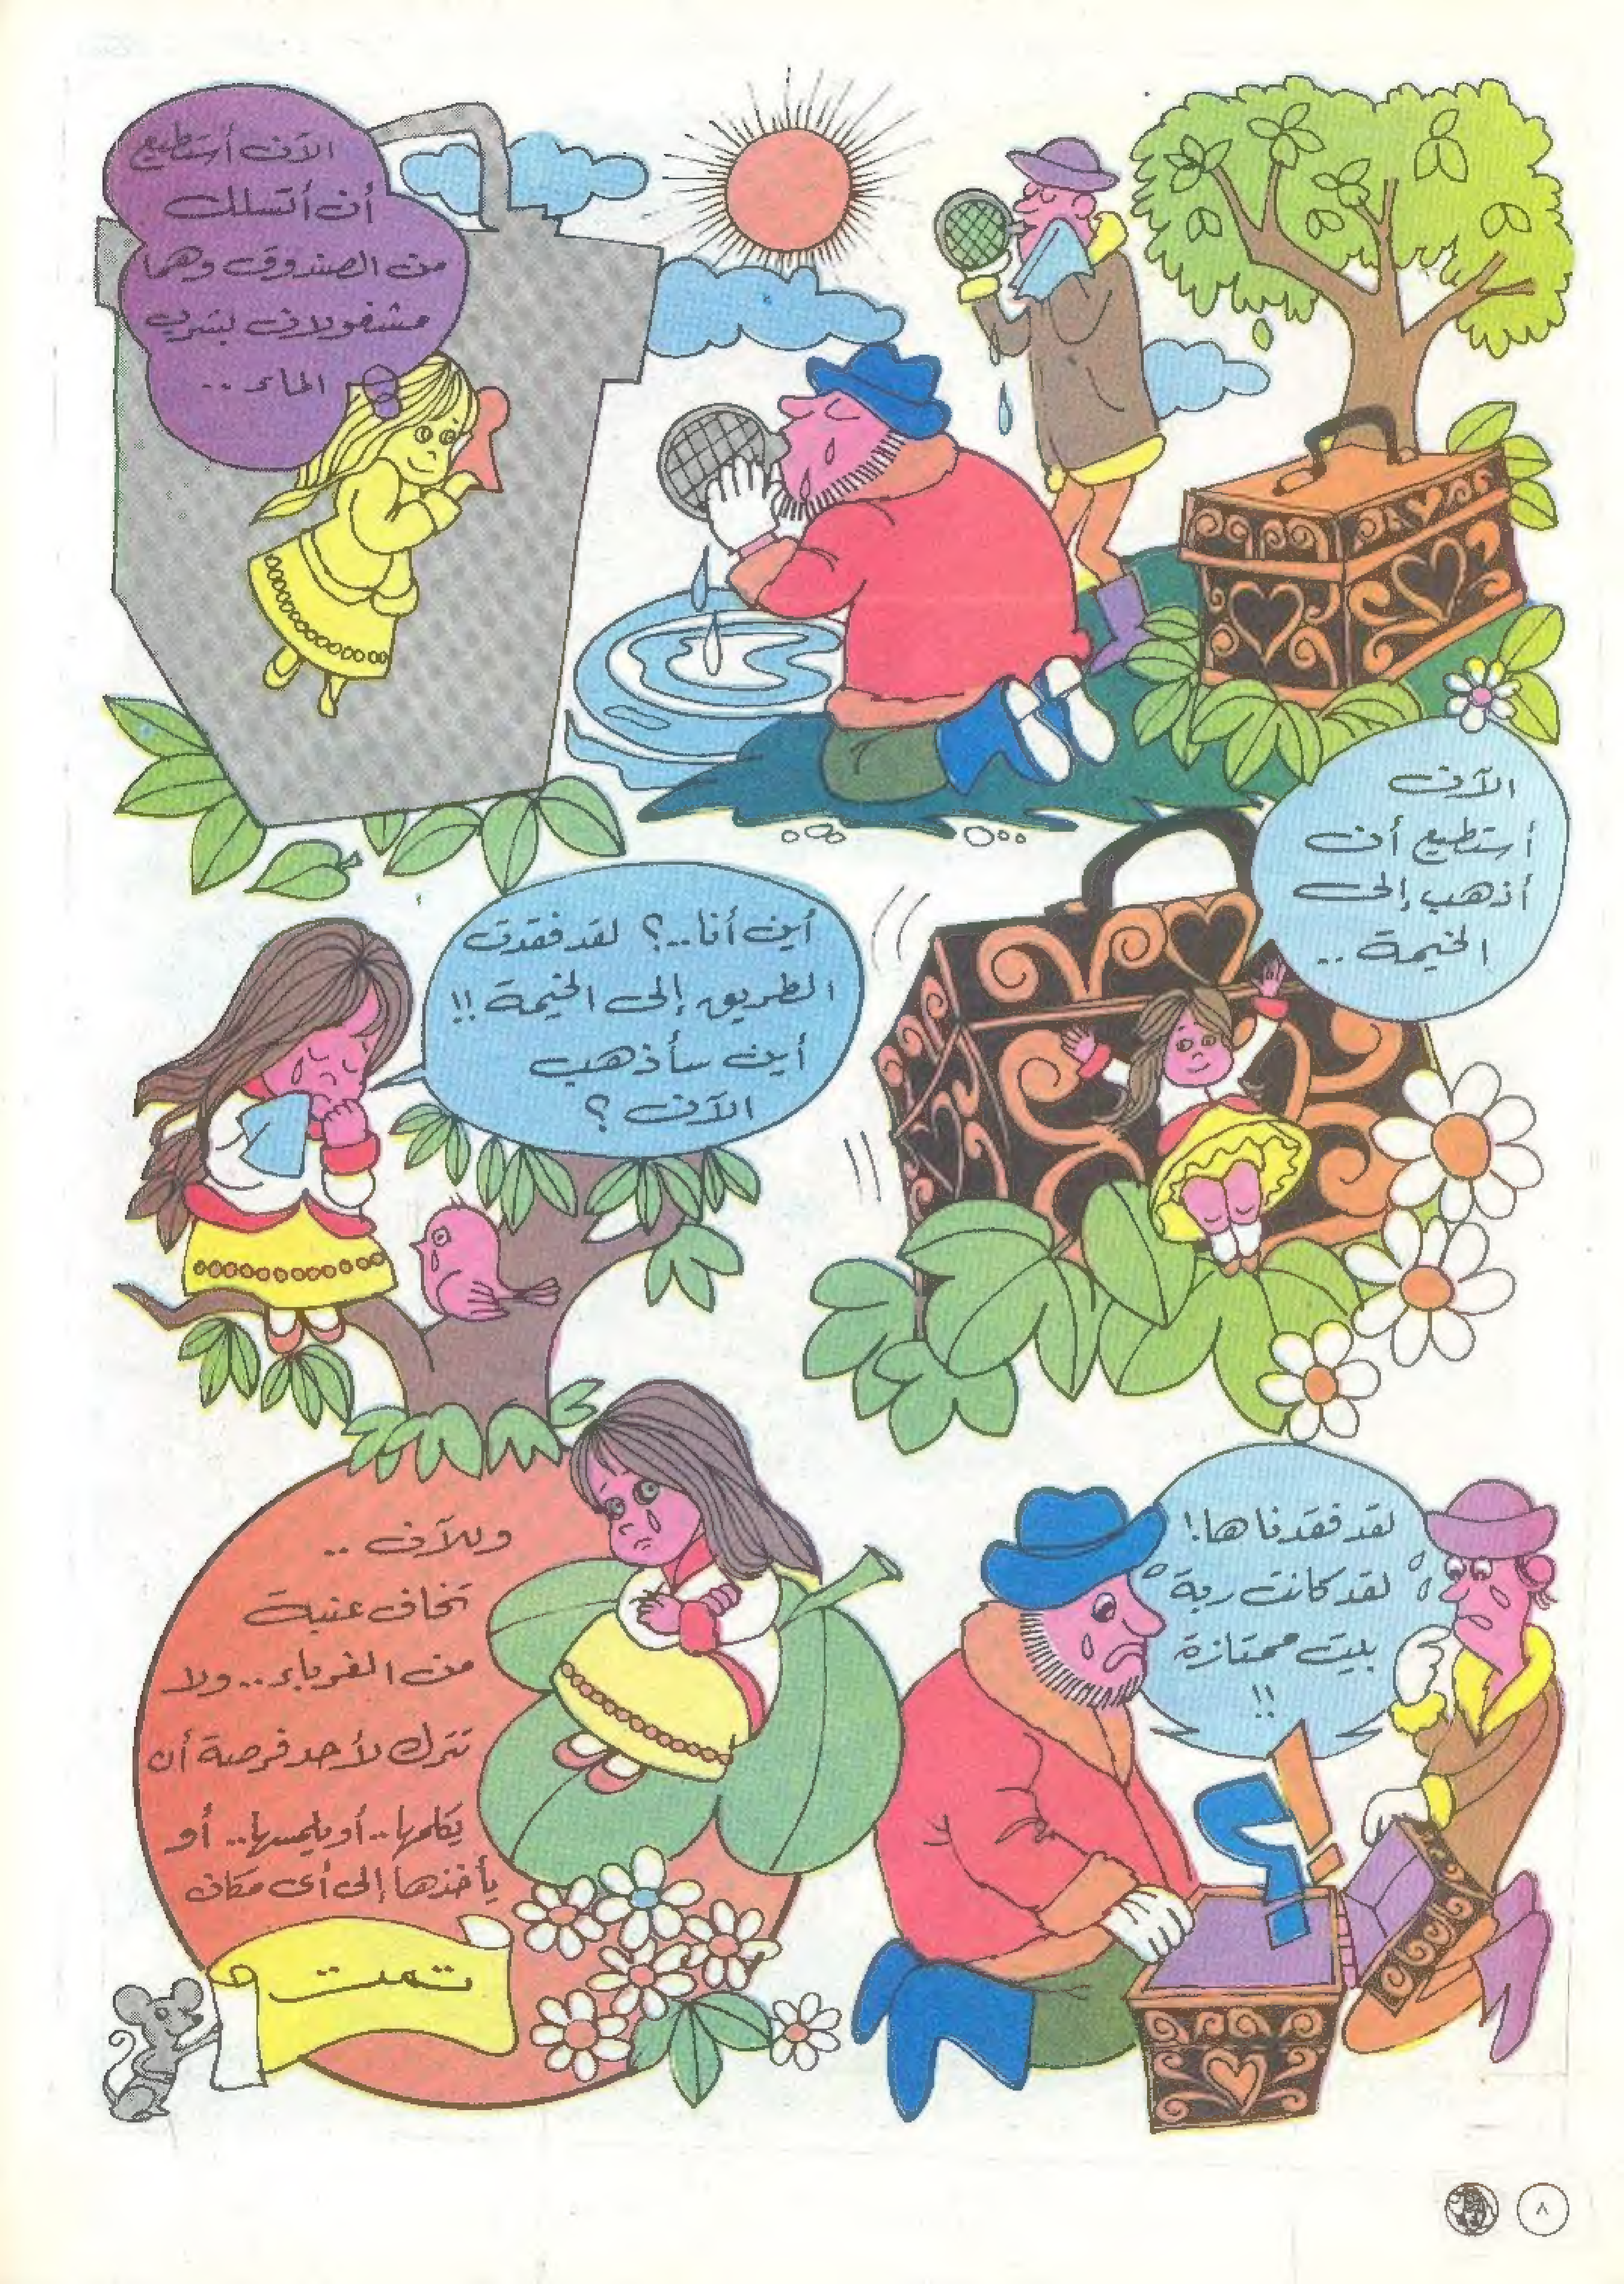 الآن أستطيع
أن أتسلل
من الصندوق وهما
مشغولان بشرب
الماء ..
الآن
أستطيع أن
أذهب إلى
الخيمة ..
أين أنا ..؟ لقد فقدت
الطريق إلى الخيمة !!
أين سأذهب
الآن ؟
لقد فقدناها !
لقد كانت ربة
بيت ممتازة
!!
وللآن ..
تخاف عنبة
من الغرباء .. ولا
تترك لأحد فرصة أن
يكلمها .. أو يلمسها .. أو
يأخذها إلى أى مكان
تمت
٨